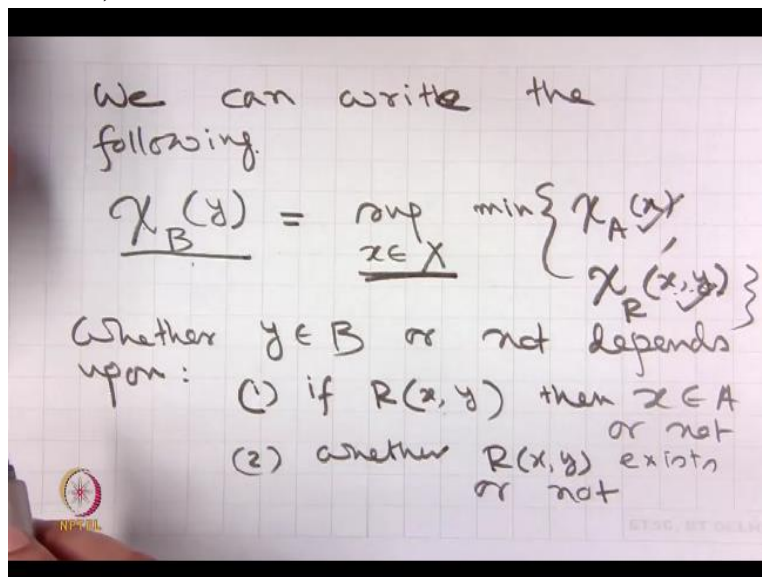 We can write the
following.
χ_B(y) = sup_{x∈X} min{ χ_A(x),
χ_R(x,y) }
Whether y ∈ B or not depends
upon:
(1) if R(x,y) then x ∈ A
or not
(2) whether R(x,y) exists
or not
NPTEL
ETSC, IIT DELHI